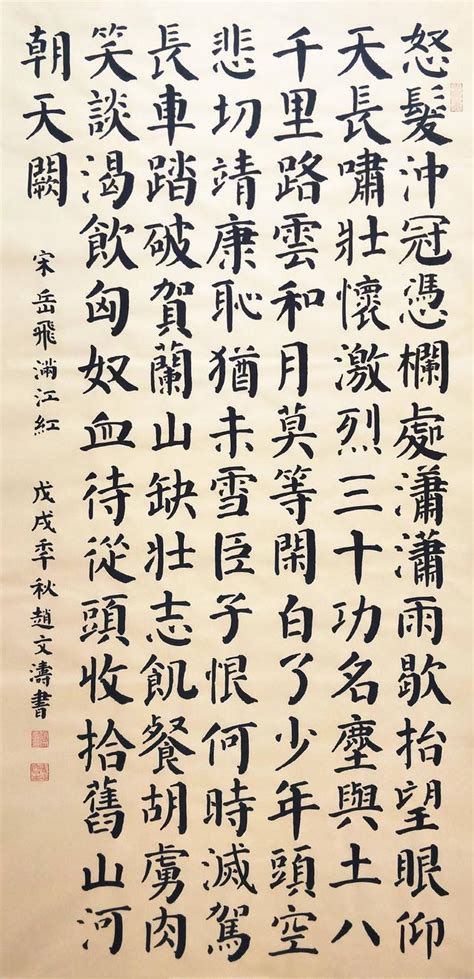 怒髮沖冠憑欄處瀟瀟雨歇抬望眼仰
天長嘯壯懷激烈三十功名塵與土八
千里路雲和月莫等閑白了少年頭空
悲切靖康恥猶未雪臣子恨何時滅駕
長車踏破賀蘭山缺壯志飢餐胡虜肉
笑談渴飲匈奴血待從頭收拾舊山河
朝天闕
宋岳飛滿江紅 戊戌季秋趙文濤書